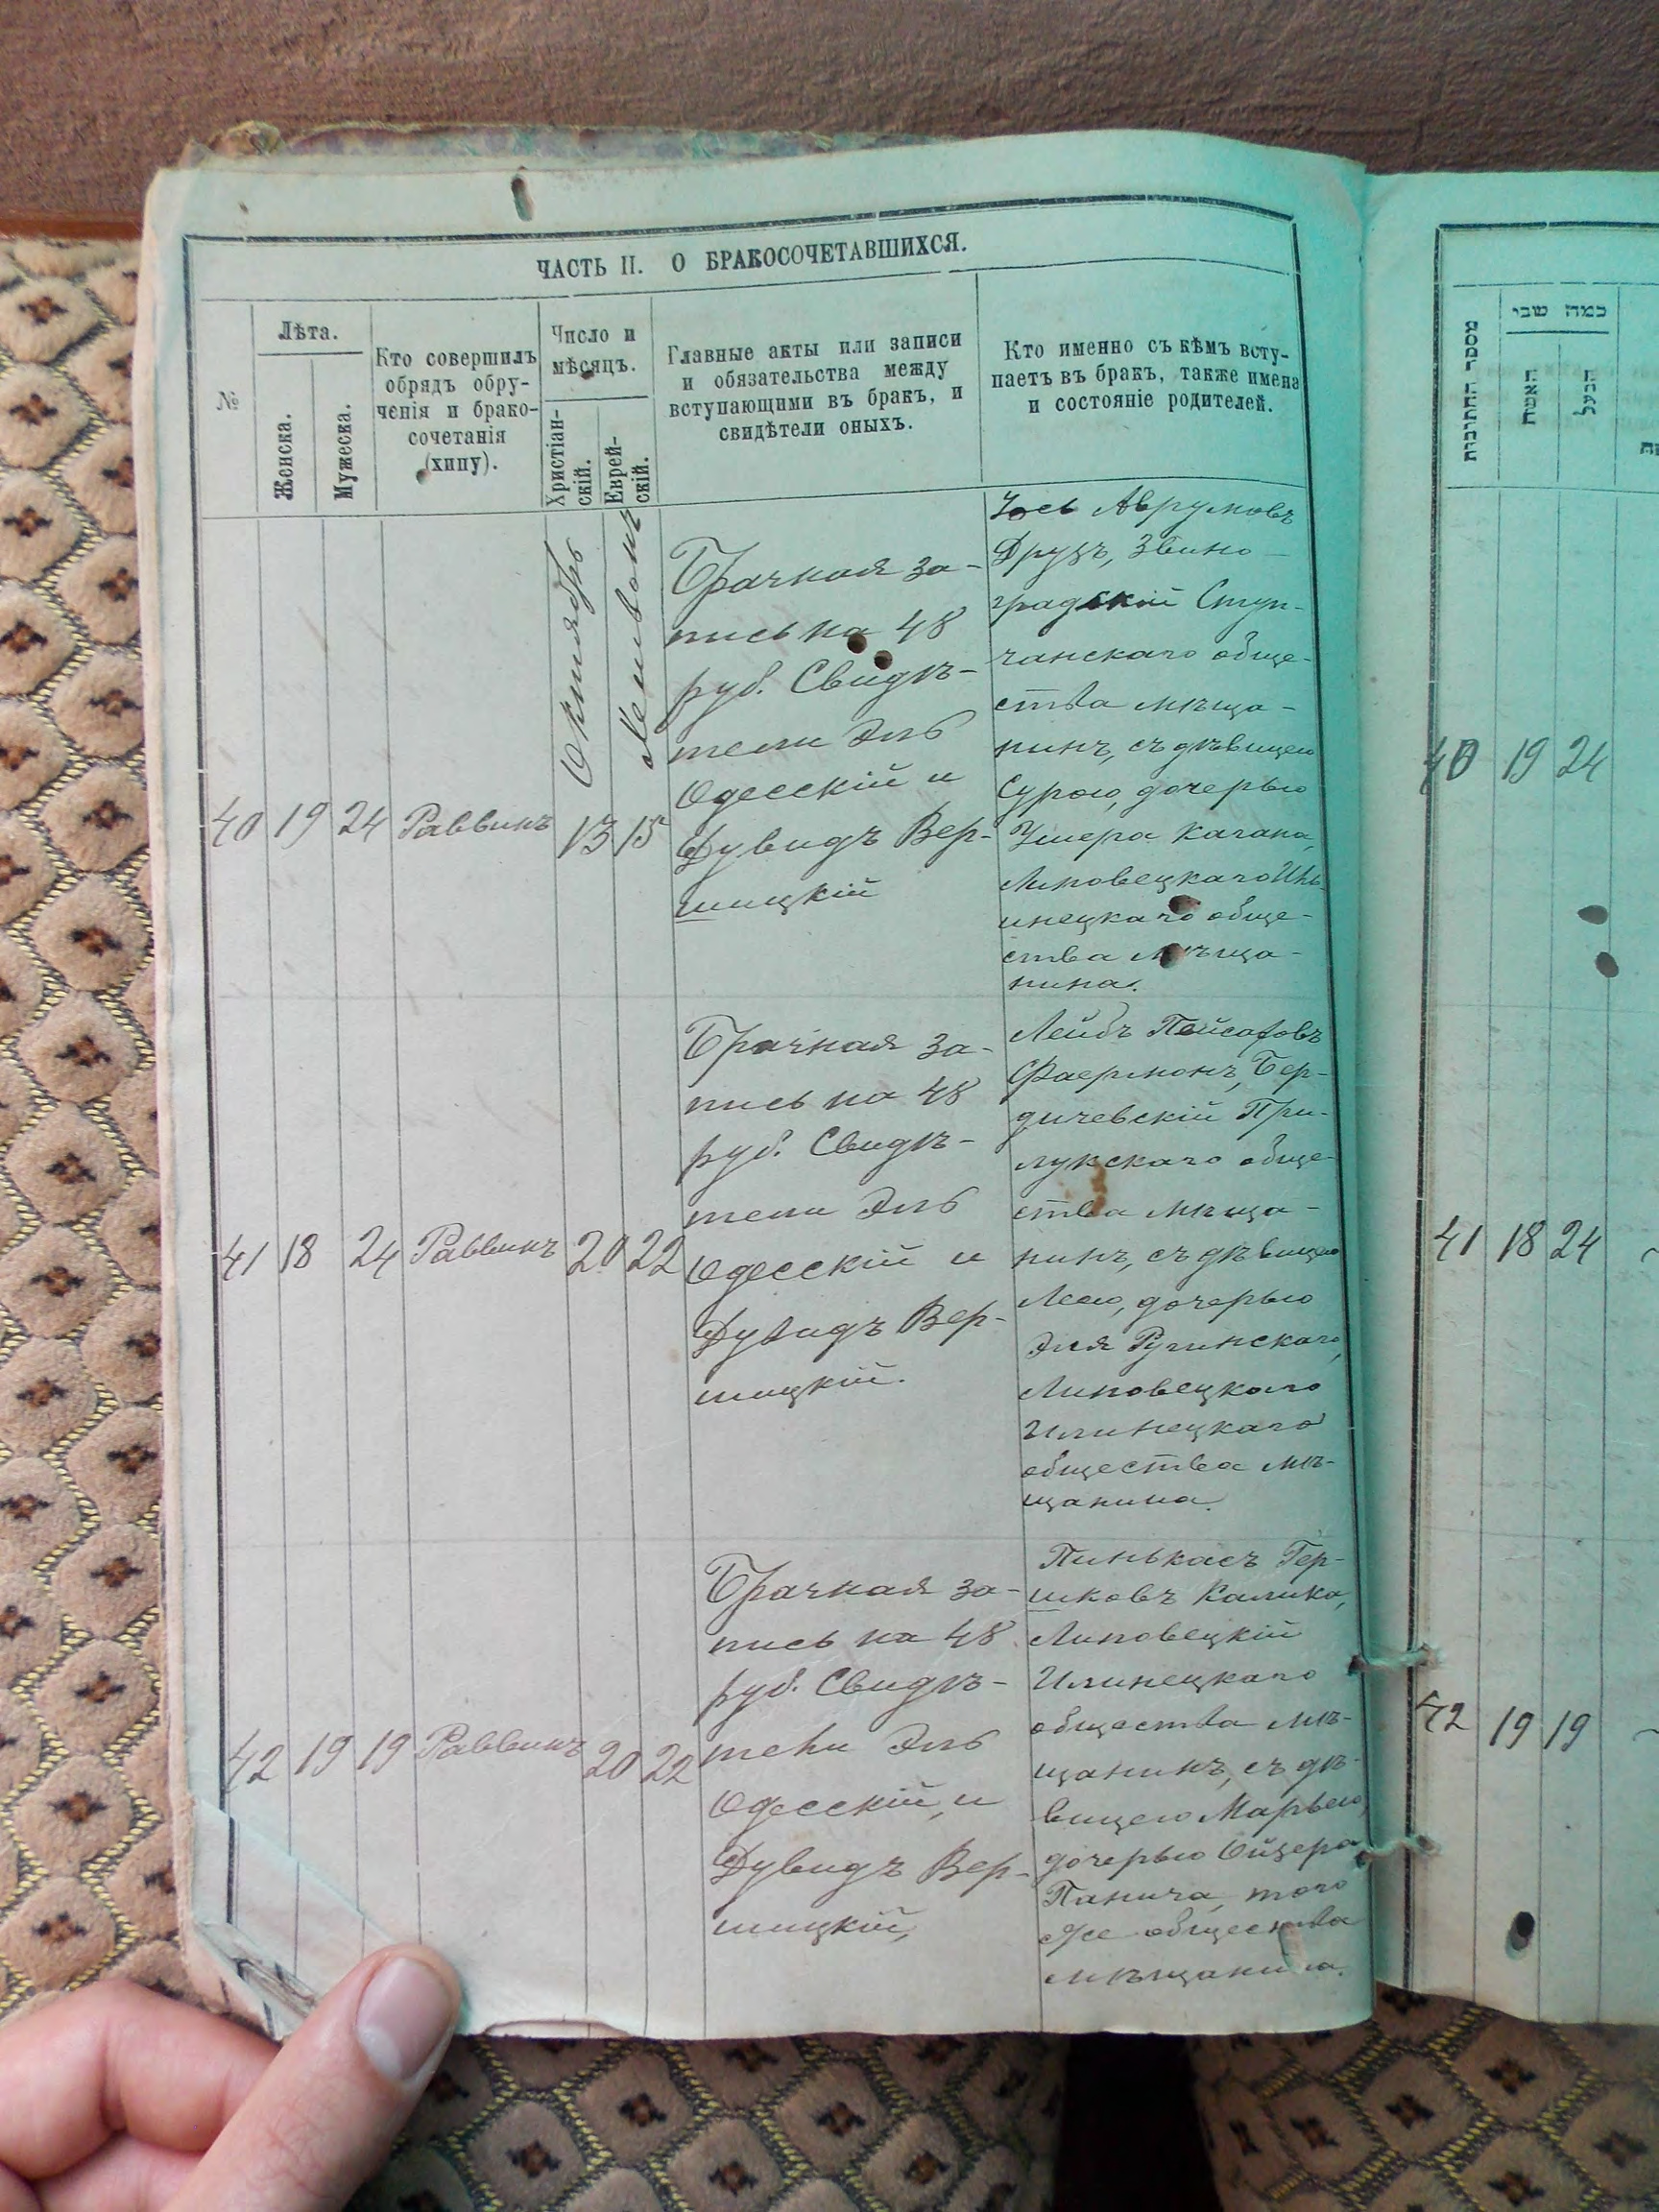 ЧАСТЬ II. О БРАКОСОЧЕТАВШИХСЯ.
№
Лѣта.
Женска.
Мужеска.
Кто совершилъ
обрядъ обру-
ченія и брако-
сочетанія
(хипу).
Число и
мѣсяцъ.
Христіан-
скій.
Еврей-
скій.
Главные акты или записи
и обязательства между
вступающими въ бракъ, и
свидѣтели оныхъ.
Кто именно съ кѣмъ всту-
паетъ въ бракъ, также имена
и состояніе родителей.
Октябрь
40 19 24 Раввинъ 13 15
Брачная за-
пись на 48
руб. Свидѣ-
тели Эль
Одесскій и
Дувидъ Вер-
шицкій
Іось Аврумовъ
Друзъ, Звено-
градскій
чанскаго обще-
ства мѣща-
нинъ, съ дѣвицею
Сурою, дочерью
Умера Кагана,
Липовецкаго Иль-
инецкаго обще-
ства мѣща-
нина.
41 18 24 Раввинъ 20 22
Брачная за-
пись на 48
руб. Свидѣ-
тели Эль
Одесскій и
Дувидъ Вер-
шицкій.
Лейбъ Пейсаховъ
Фаермонъ, Бер-
дичевскій При-
лукскаго обще-
ства мѣща-
нинъ, съ дѣвицею
Леею, дочерью
Эля Ружинскаго,
Липовецкаго
Илинецкаго
общества мѣ-
щанина.
42 19 19 Раввинъ 20 22
Брачная за-
пись на 48
руб. Свидѣ-
тели Эль
Одесскій, и
Дувидъ Вер-
шицкій,
Пинькасъ Гер-
шковъ Калика,
Липовецкій
Илинецкаго
общества мѣ-
щанинъ, съ дѣ-
вицею Марьею,
дочерью Ойзера
Панича, того
же общества
мѣщанина.
מספר החתונות
כמה שני
האשה
הבעל
40 19 24
41 18 24
42 19 19